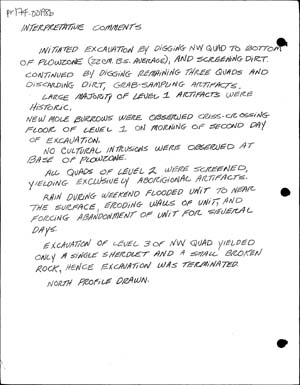 INTERPRETATIVE COMMENTS
INITIATED EXCAVATION BY DIGGING NW QUAD TO BOTTOM
OF PLOWZONE (22CM. B.S. AVERAGE), AND SCREENING DIRT.
CONTINUED BY DIGGING REMAINING THREE QUADS AND
DISCARDING DIRT, GRAB-SAMPLING ARTIFACTS.
LARGE MAJORITY OF LEVEL 1 ARTIFACTS WERE
HISTORIC.
NEW MOLE BURROWS WERE OBSERVED CRISS-CROSSING
FLOOR OF LEVEL 1 ON MORNING OF SECOND DAY
OF EXCAVATION.
NO CULTURAL INTRUSIONS WERE OBSERVED AT
BASE OF PLOWZONE.
ALL QUADS OF LEVEL 2 WERE SCREENED,
YIELDING EXCLUSIVELY ABORIGINAL ARTIFACTS.
RAIN DURING WEEKEND FLOODED UNIT TO NEAR
THE SURFACE, ERODING WALLS OF UNIT, AND
FORCING ABANDONMENT OF UNIT FOR SEVERAL
DAYS.
EXCAVATION OF LEVEL 3 OF NW QUAD YIELDED
ONLY A SINGLE SHERDLET AND A SMALL BROKEN
ROCK, HENCE EXCAVATION WAS TERMINATED.
NORTH PROFILE DRAWN.